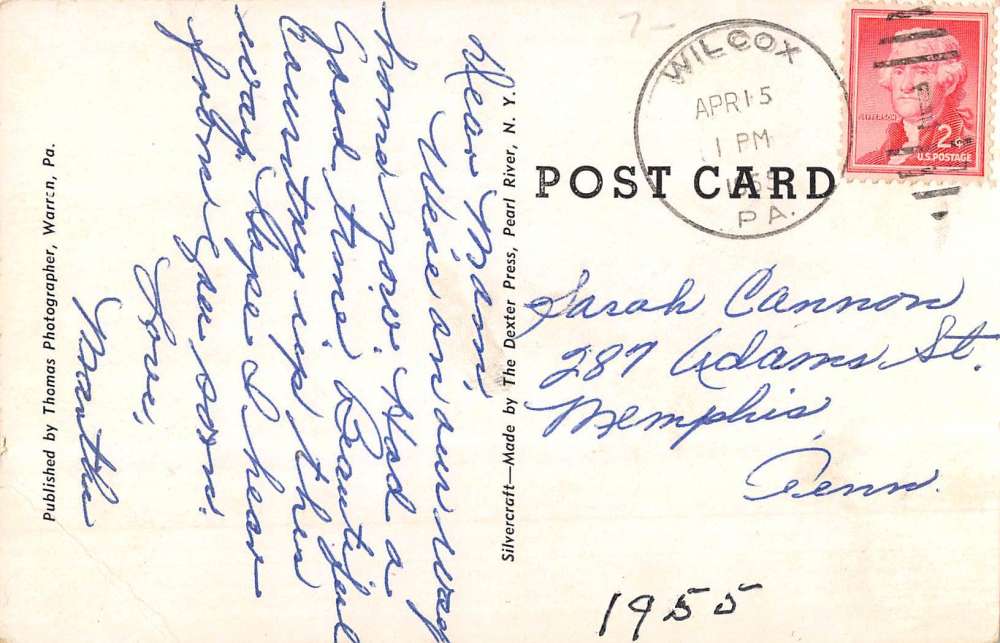 Dear Mom,
We're on our way
home now. Had a
Good time. Beautiful
Country up this
way. Hope I hear
from you soon.
Love,
Martha
Published by Thomas Photographer, Warren, Pa.
Silvercraft—Made by The Dexter Press, Pearl River, N. Y.
POST CARD
WILCOX
APR 15
1 PM
PA.
JEFFERSON
2¢
U.S. POSTAGE
Sarah Cannon
287 Adams St.
Memphis
Tenn.
1955